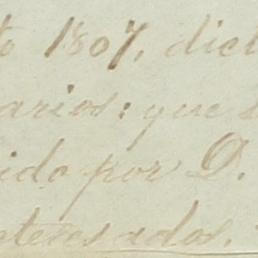 to 1807, dict
arios: que
ido por D.
nteresados.